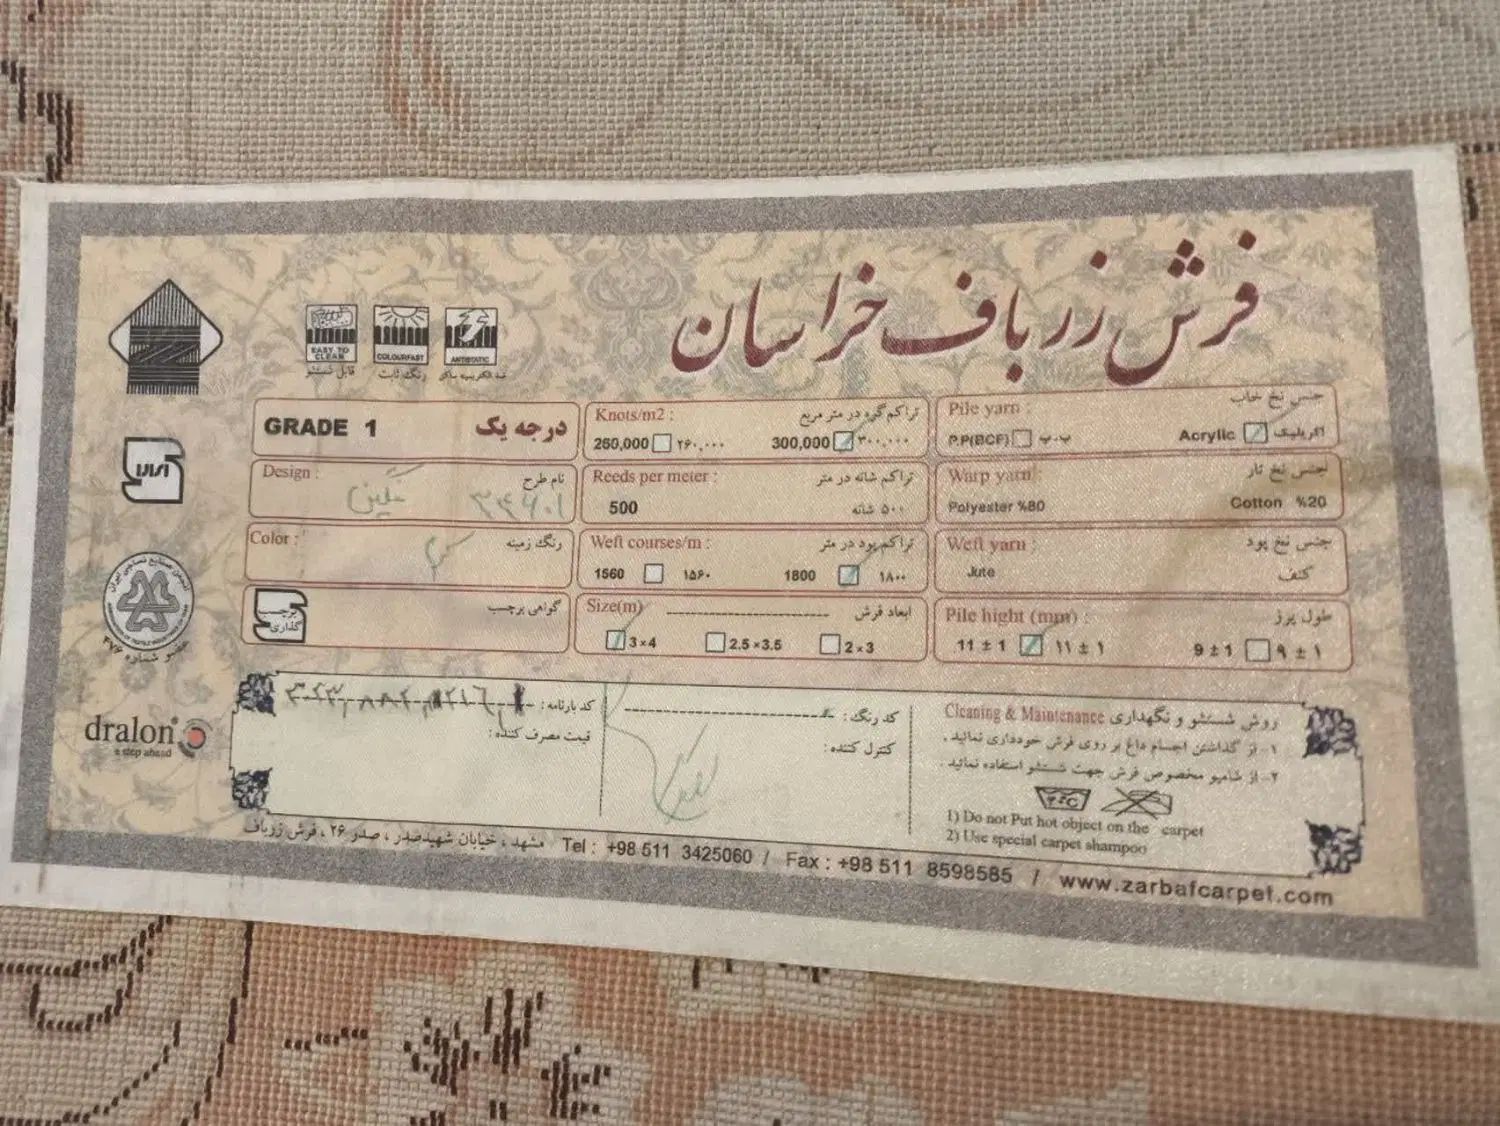 فرش زرباف خراسان
EASY TO CLEAN
قابل شستشو
COLOURFAST
رنگ ثابت
ANTISTATIC
ضد الکتریسیته ساکن
GRADE 1 درجه یک
Design : نام طرح
Color : رنگ زمینه
کرم
گواهی برچسب
برچسب گذاری
Knots/m2 : تراکم گره در متر مربع
260,000 ۲۶۰,۰۰۰ 300,000 ۳۰۰,۰۰۰
Reeds per meter : تراکم شانه در متر
500 ۵۰۰ شانه
Weft courses/m : تراکم پود در متر
1560 ۱۵۶۰ 1800 ۱۸۰۰
Size(m) ابعاد فرش
3×4 2.5×3.5 2×3
Pile yarn : جنس نخ خاب
P.P(BCF) پ.پ Acrylic اکریلیک
Warp yarn : جنس نخ تار
Polyester %80 Cotton %20
Weft yarn : جنس نخ پود
Jute کنف
Pile hight (mm) : طول پرز
11 ± 1 ۱۱ ± ۱ 9 ± 1 ۹ ± ۱
عضو شماره ۴۷۶
dralon®
a step ahead
کد بارنامه :
قیمت مصرف کننده :
کد رنگ :
کنترل کننده :
Cleaning & Maintenance روش شستشو و نگهداری
۱- از گذاشتن اجسام داغ بر روی فرش خودداری نمائید .
۲- از شامپو مخصوص فرش جهت شستشو استفاده نمائید .
1) Do not Put hot object on the carpet
2) Use special carpet shampoo
مشهد ، خیابان شهیدصدر ، صدر ۲۶ ، فرش زرباف Tel : +98 511 3425060 / Fax : +98 511 8598585 / www.zarbafcarpet.com